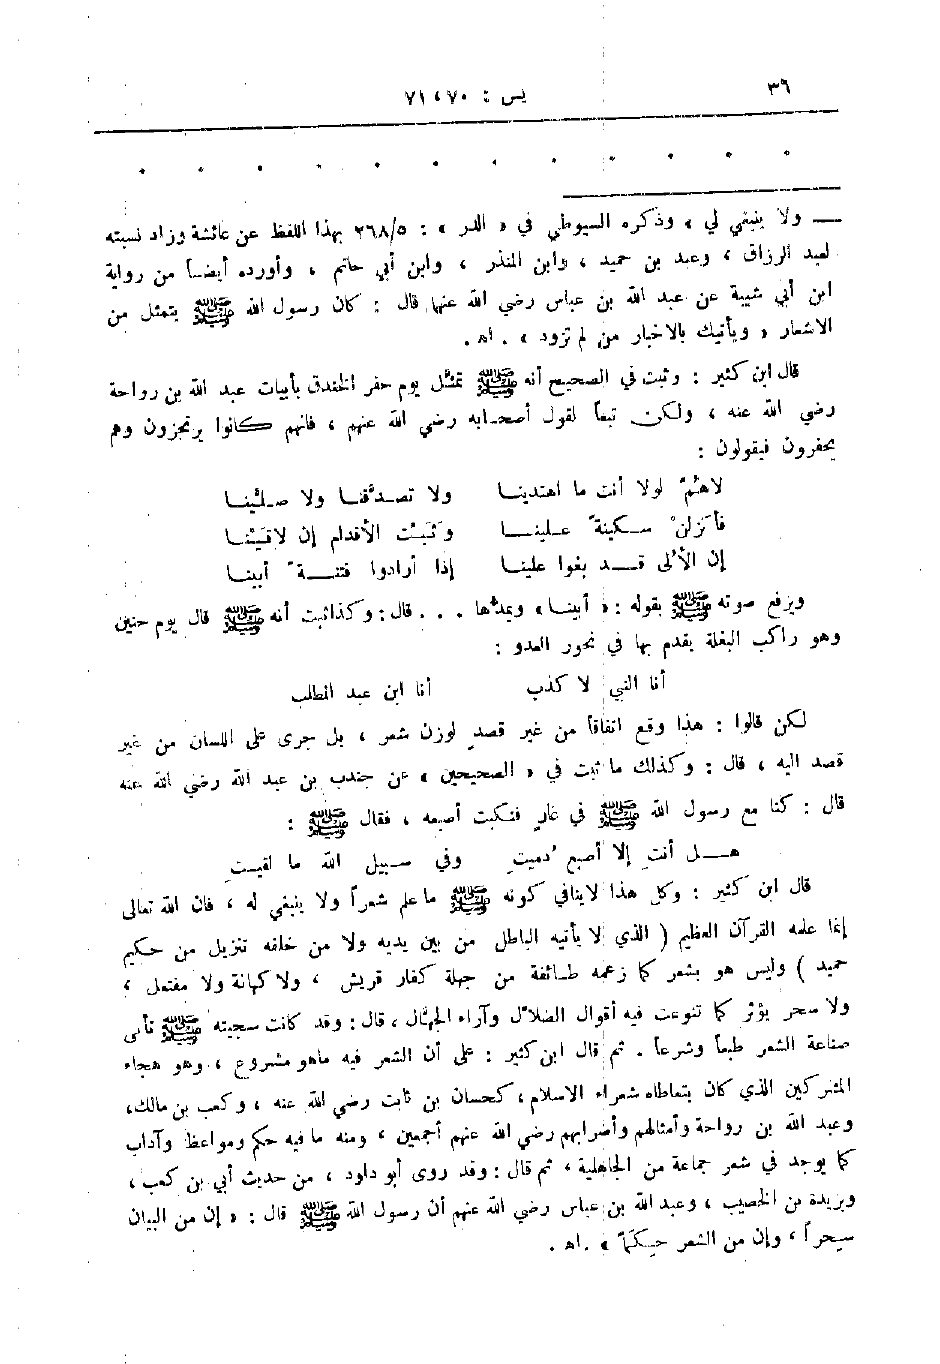 ٣٩
يس : ٧٠ ، ٧١
— ولا ينبغي لي » وذكره السيوطي في « الدر » : ٢٦٨/٥ بهذا اللفظ عن عائشة وزاد نسبته
لعبد الرزاق ، وعبد بن حميد ، وابن المنذر ، وابن أبي حاتم ، وأورده أيضاً من رواية
ابن أبي شيبة عن عبد الله بن عباس رضي الله عنها قال : كان رسول الله ﷺ يتمثل من
الاشعار « ويأتيك بالاخبار من لم تزود » . اه .
قال ابن كثير : وثبت في الصحيح أنه ﷺ تمثَّل يوم حفر الخندق بأبيات عبد الله بن رواحة
رضي الله عنه ، ولكن تبعاً لقول أصحابه رضي الله عنهم ، فانهم كانوا يرتجزون وهم
يحفرون فيقولون :
لاهُمَّ لولا أنت ما اهتدينا ولا تصدَّقنا ولا صلَّينا
فأنزلنْ سكينةً علينا وثَبِّت الأقدام إن لاقَيْنا
إن الأُلى قد بغوا علينا إذا أرادوا فتنةً أبينا
ويرفع صوته ﷺ بقوله : « أبينا » ويمدُّها . . . قال : وكذا ثبت أنه ﷺ قال يوم حنين
وهو راكب البغلة يقدم بها في نحور العدو :
أنا النبي لا كذب أنا ابن عبد المطلب
لكن قالوا : هذا وقع اتفاقاً من غير قصدٍ لوزن شعر ، بل جرى على اللسان من غير
قصد اليه ، قال : وكذلك ما ثبت في « الصحيحين » عن جندب بن عبد الله رضي الله عنه
قال : كنا مع رسول الله ﷺ في غارٍ فنكبت أصبعه ، فقال ﷺ :
هل أنتِ إلا أصبع دُميتِ وفي سبيل الله ما لقيتِ
قال ابن كثير : وكل هذا لاينافي كونه ﷺ ما علم شعراً ولا ينبغي له ، فان الله تعالى
إنما علمه القرآن العظيم ( الذي لا يأتيه الباطل من بين يديه ولا من خلفه تنزيل من حكيم
حميد ) وليس هو بشعر كما زعمه طائفة من جهلة كفار قريش ، ولا كهانة ولا مفتعل ،
ولا سحر يؤثر كما تنوعت فيه أقوال الضلاَّل وآراء الجهَّال ، قال : وقد كانت سجيته ﷺ تأبى
صناعة الشعر طبعاً وشرعاً . ثم قال ابن كثير : على أن الشعر فيه ماهو مشروع ، وهو هجاء
المشركين الذي كان يتعاطاه شعراء الاسلام ، كحسان بن ثابت رضي الله عنه ، وكعب بن مالك ،
وعبد الله بن رواحة وأمثالهم وأضرابهم رضي الله عنهم أجمعين ، ومنه ما فيه حكم ومواعظ وآداب
كما يوجد في شعر جماعة من الجاهلية ، ثم قال : وقد روى أبو داود ، من حديث أبي بن كعب ،
وبريدة بن الخصيب ، وعبد الله بن عباس رضي الله عنهم أن رسول الله ﷺ قال : « إن من البيان
سِحراً ، وإن من الشعر حِكَماً » . اه .